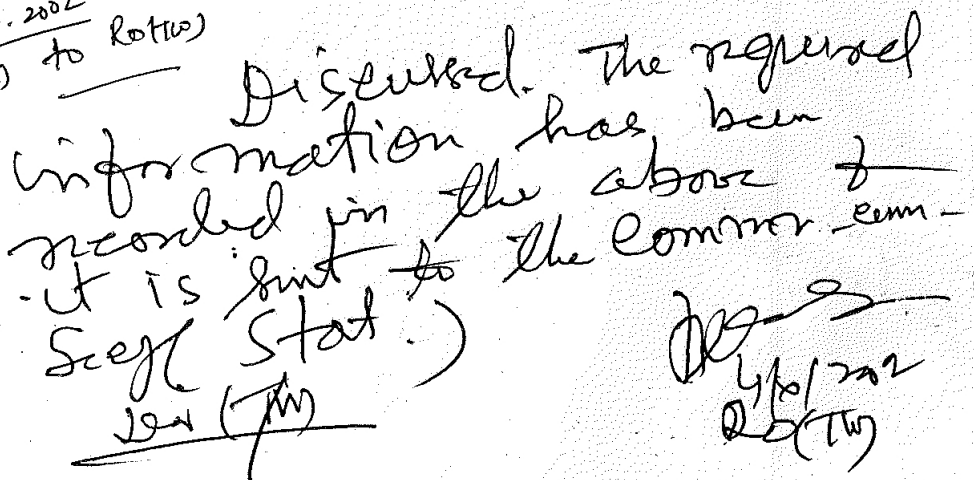 .2002
to RO(TW)
Discussed. The required
information has been
recorded in the above &
it is sent to the Commnr-cum-
Secy( Stat.)
4/10/2002
RO(TW)